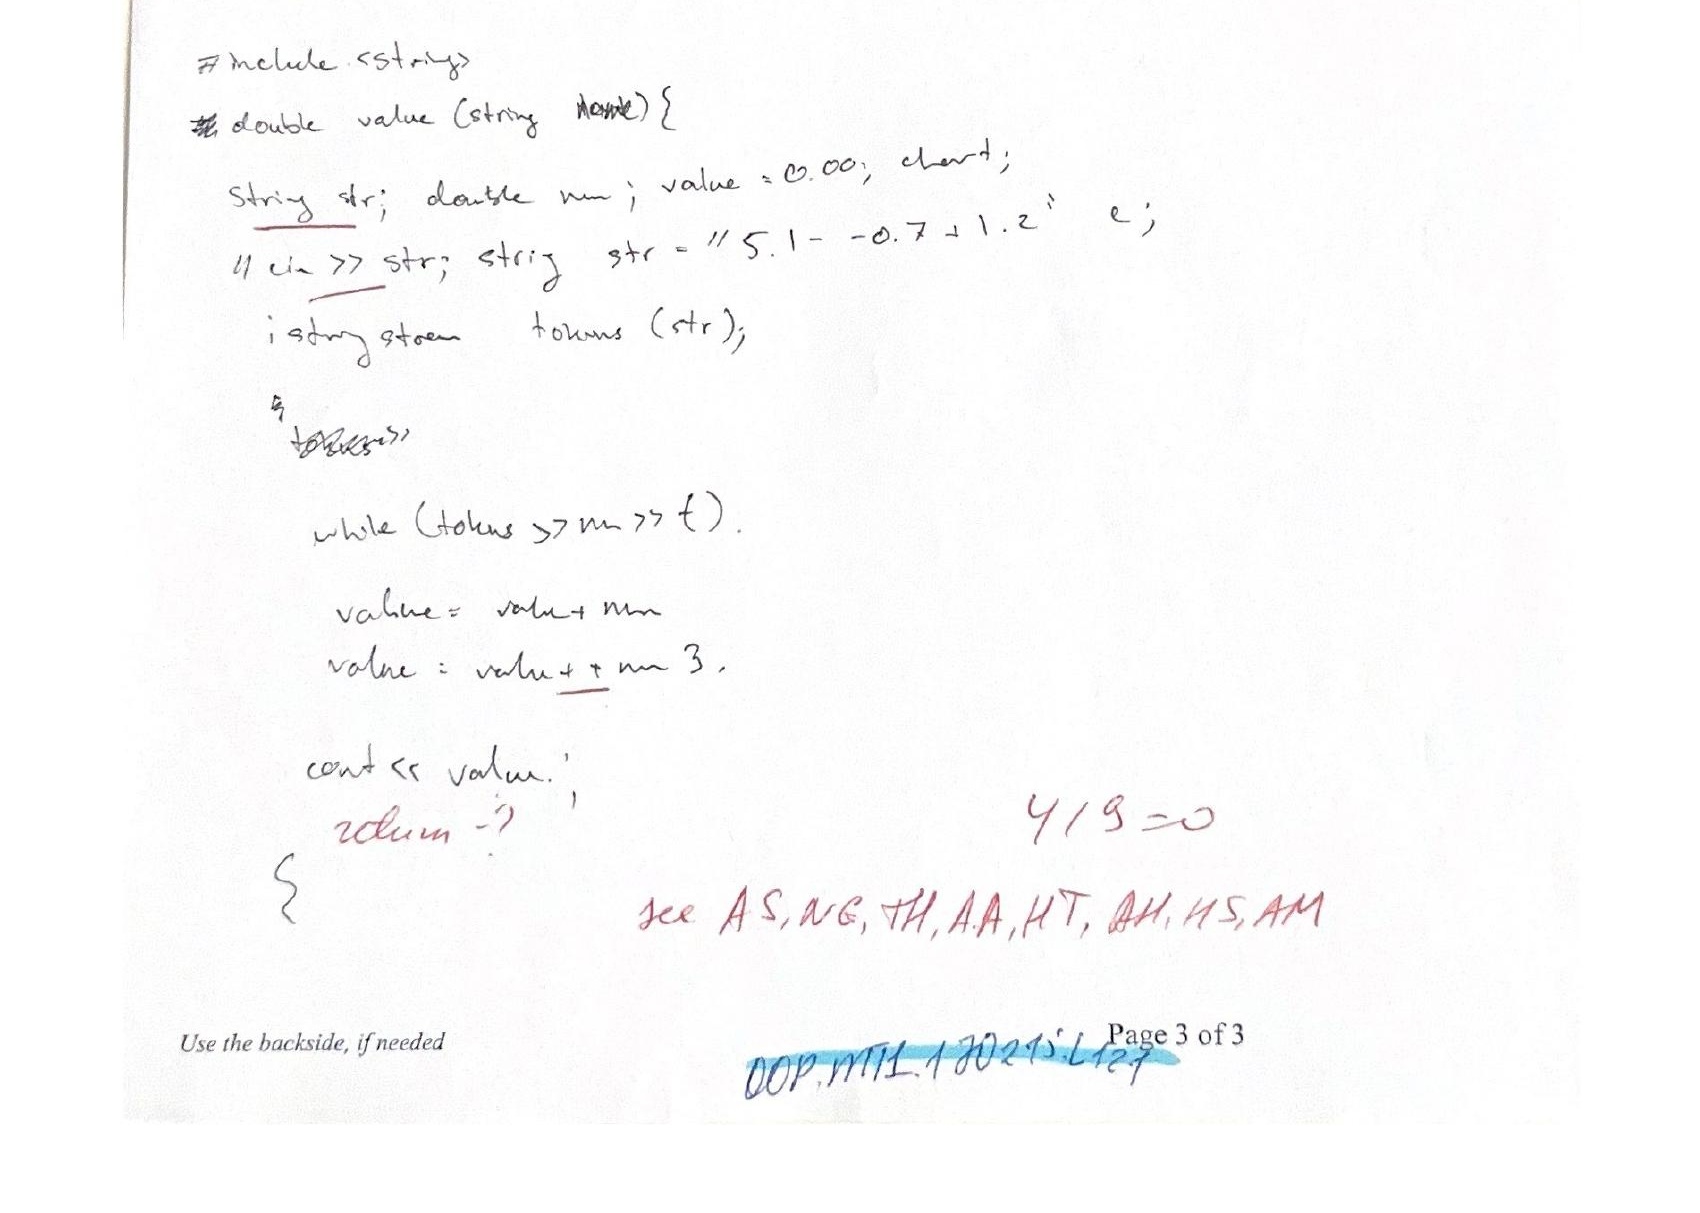 #include <string>
double value (string name) {
String str; double num; value = 0.00; char t;
// cin >> str; string str = "5.1 - -0.7 + 1.2" e;
istringstream tokens (str);
tokens >>
while (tokens >> num >> t).
value = value + num
value = value + + num 3.
cout << value.;
return -?
{
4/9 = 0
see AS, NG, TH, AA, HT, AH, HS, AM
Use the backside, if needed
Page 3 of 3